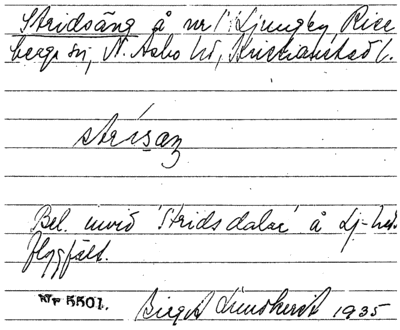 Stridsäng å nr 1 Ljungby, Rise-
berga sn, N. Åsbo hd, Kristianstad l.
strísaŋ
Bel. invid 'Stridsdalar' å Lj-heds
flygfält.
Nr 5501. Birgit Lundkvist 1935